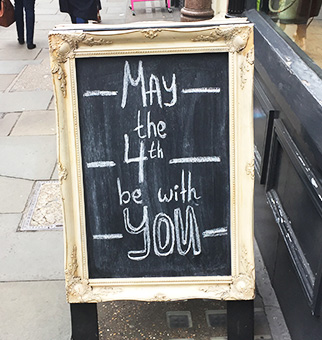 MAY
the
4th
be with
YOU